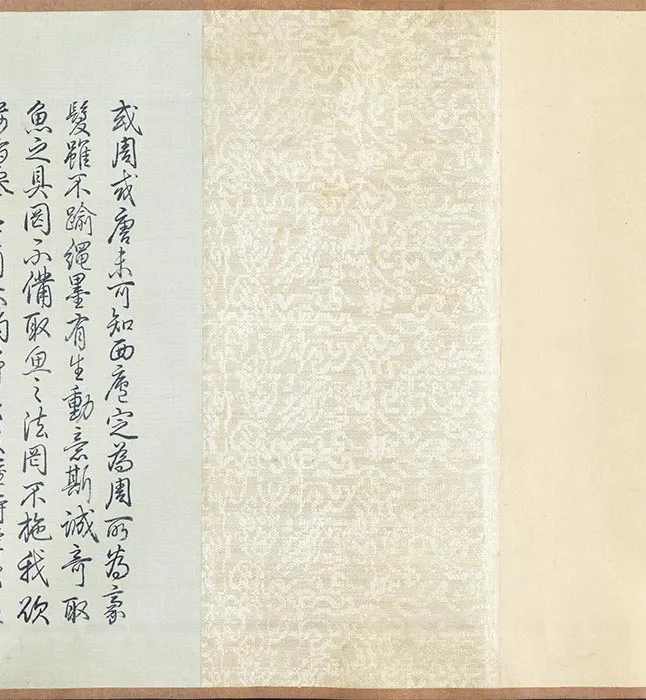 或周或唐未可知西廬定為周所為豪
髮雖不踰繩墨有生動意斯誠奇取
魚之具罔不備取魚之法罔不施我欲